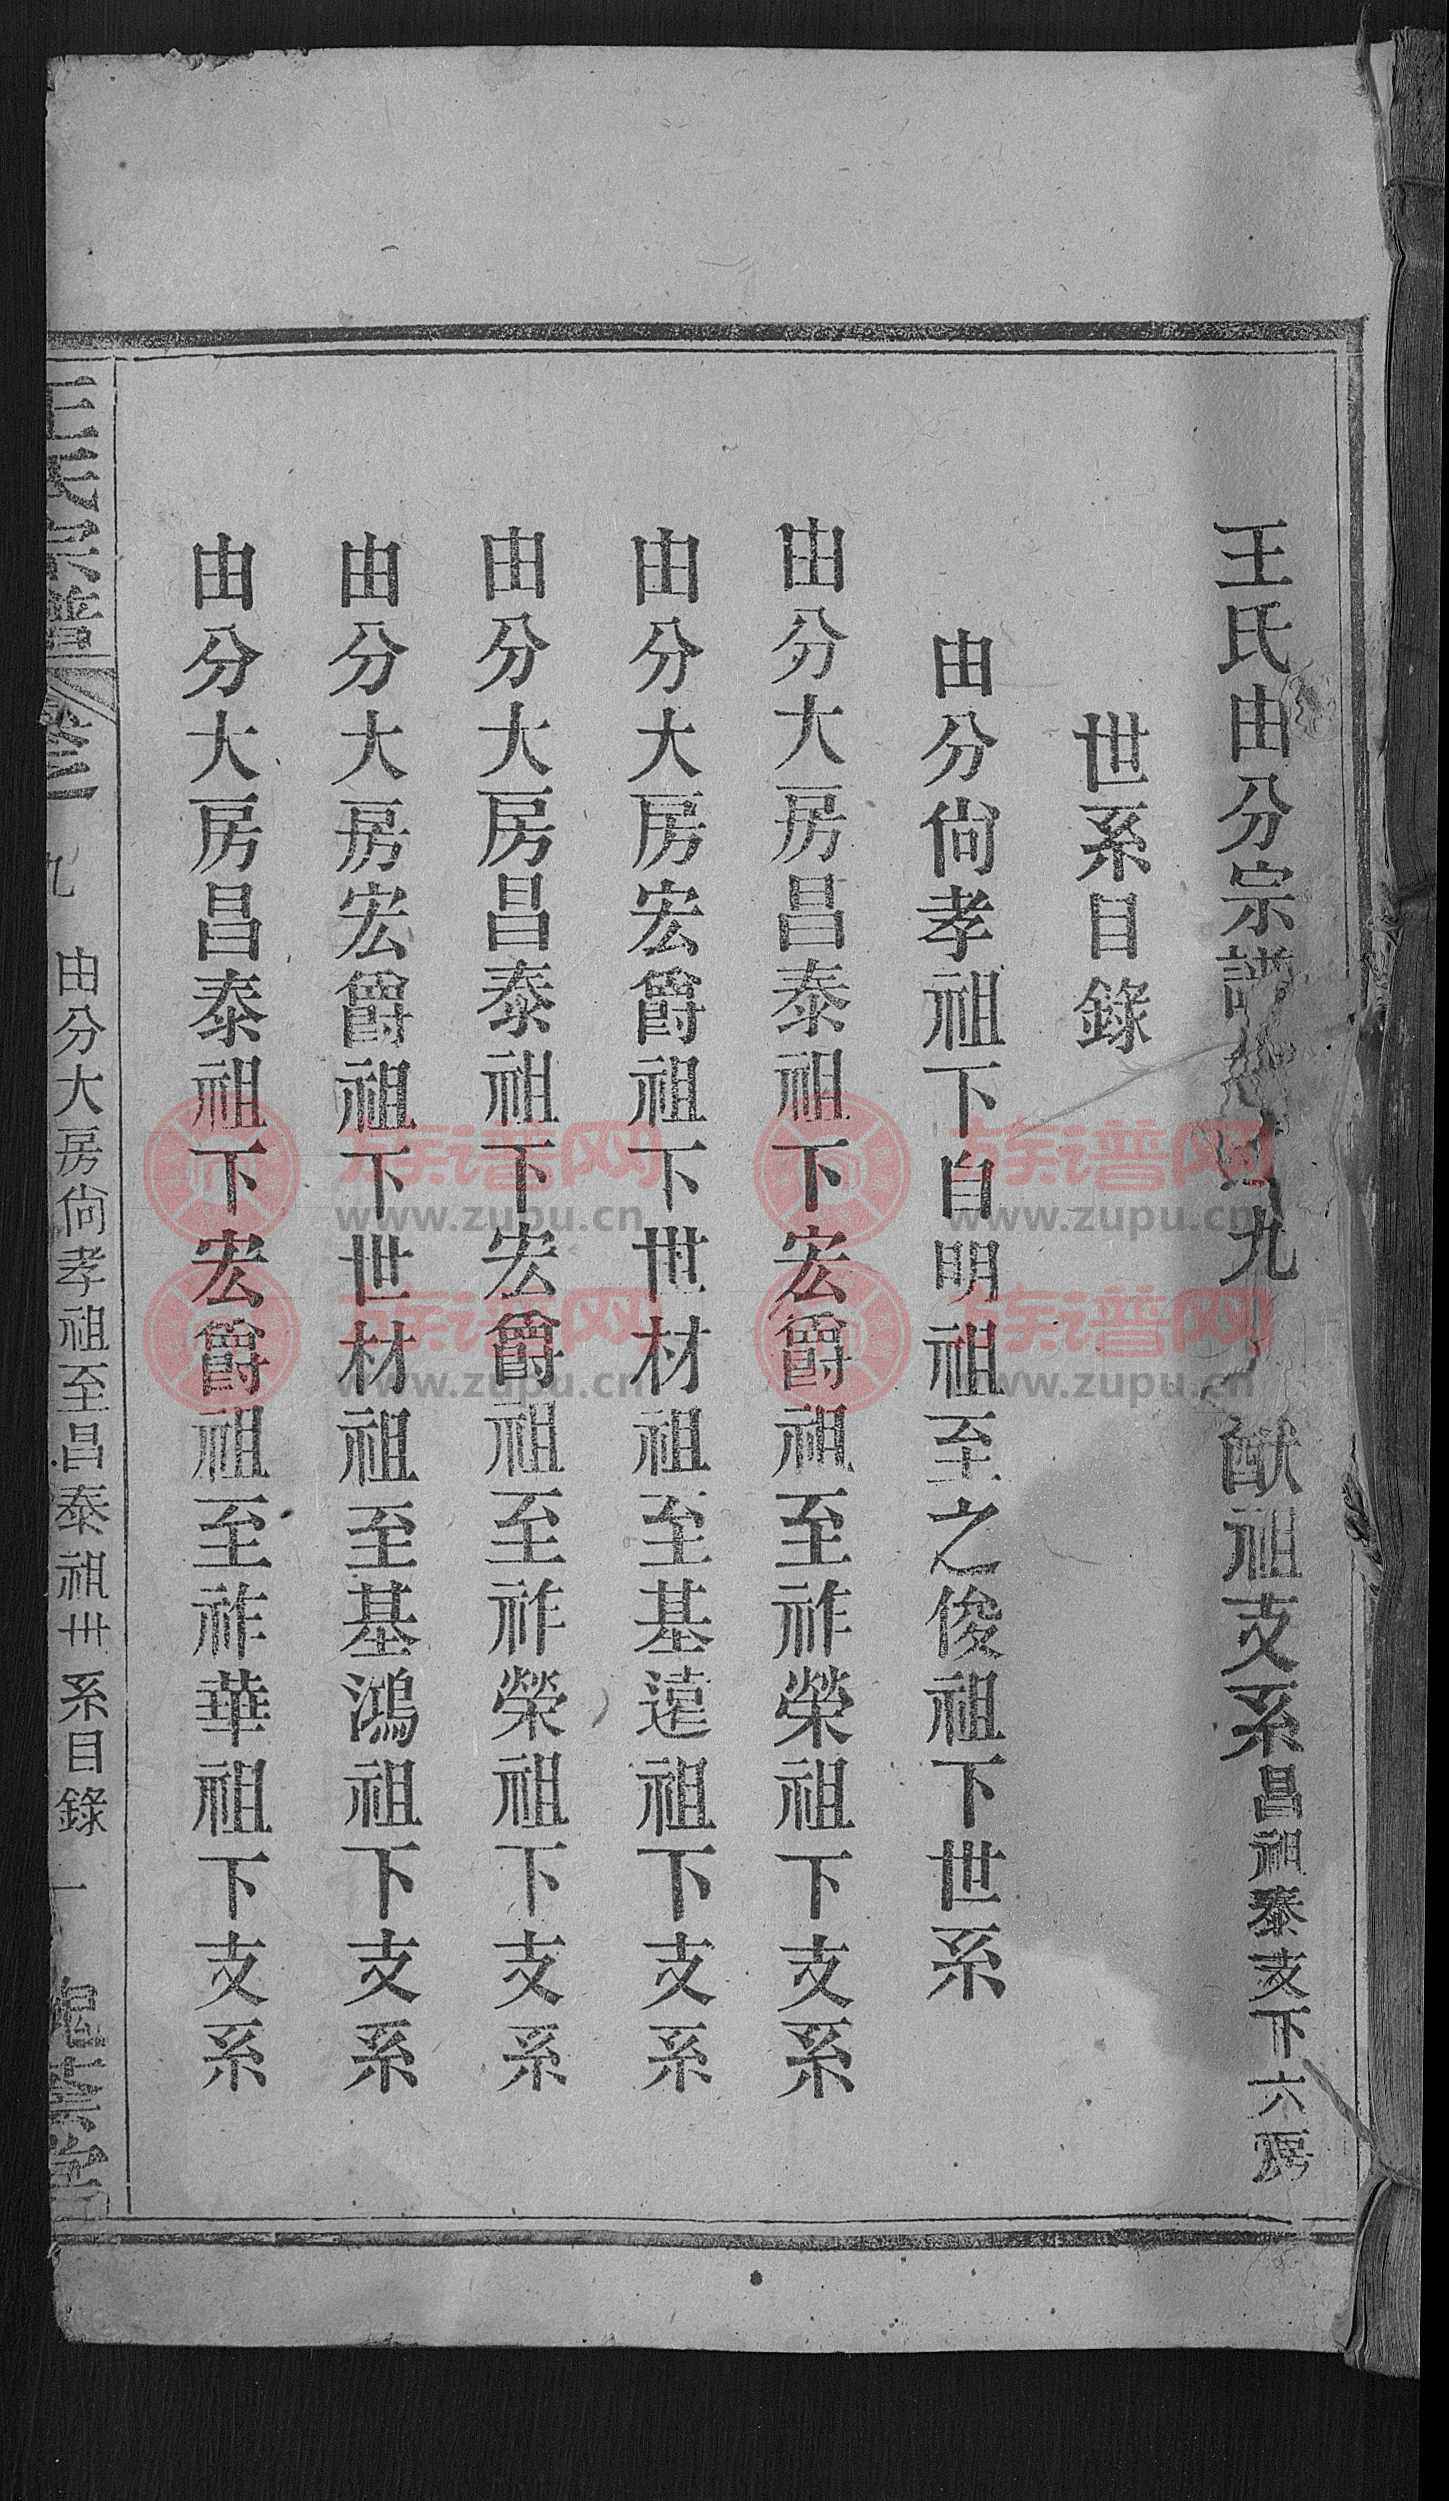 王氏由分宗譜卷九 猷祖支系昌祖泰支下六房
世系目錄
由分尙孝祖下自明祖至之俊祖下世系
由分大房昌泰祖下宏爵祖至祚榮祖下支系
由分大房宏爵祖下世材祖至基遠祖下支系
由分大房昌泰祖下宏爵祖至祚榮祖下支系
由分大房宏爵祖下世材祖至基鴻祖下支系
由分大房昌泰祖下宏爵祖至祚華祖下支系
王氏宗譜 卷之九 由分大房尙孝祖至昌泰祖世系目錄 一
族谱网
www.zupu.cn
族谱网
www.zupu.cn
族谱网
www.zupu.cn
族谱网
www.zupu.cn